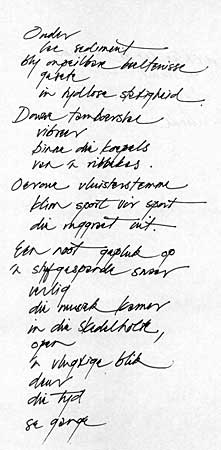 Onder
die sediment
bly onpeilbare bultenisse
gabare
in tydlose stiltigheid.
Dowwe tamboerslae
vibreer
binne die koepels
van 'n ribbekas.
Oeroue fluisterstemme
klim sport vir sport
die ruggraat uit.
Een noot gepluk op
'n styfgespande snaar
verlig
die musiek kamer
in die skedelholte,
open
'n vlugtige blik
deur
die tyd
se gange